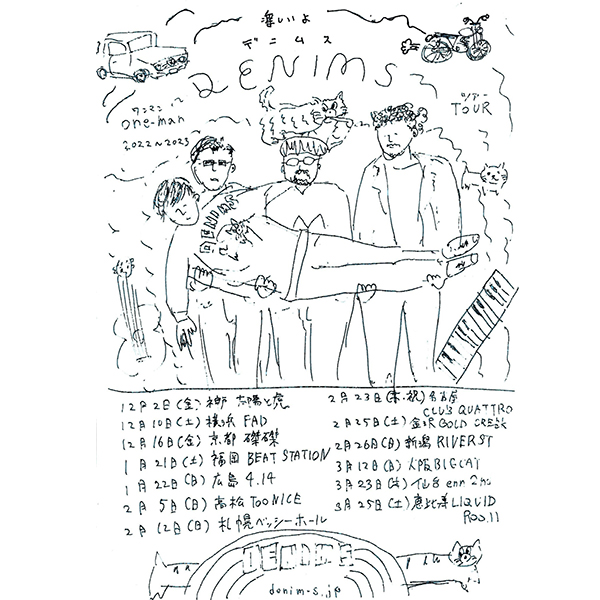 深いよ
デニムス
DENIMS
ワンマン
one-man
2022~2023
ツアー
TOUR
12月2日(金) 神戸 太陽と虎
12月10日(土) 横浜 FAD
12月16日(金) 京都 磔磔
1月21日(土) 福岡 BEAT STATION
1月22日(日) 広島 4.14
2月5日(日) 高松 TOONICE
2月12日(日) 札幌ベッシーホール
2月23日(木・祝) 名古屋
CLUB QUATTRO
2月25日(土) 金沢 GOLD CREEK
2月26日(日) 新潟 RIVERST
3月12日(日) 大阪 BIGCAT
3月23日(木) 仙台 enn 2nd
3月25日(土) 恵比寿 LIQUID
ROOM
DENIMS
denim-s.jp